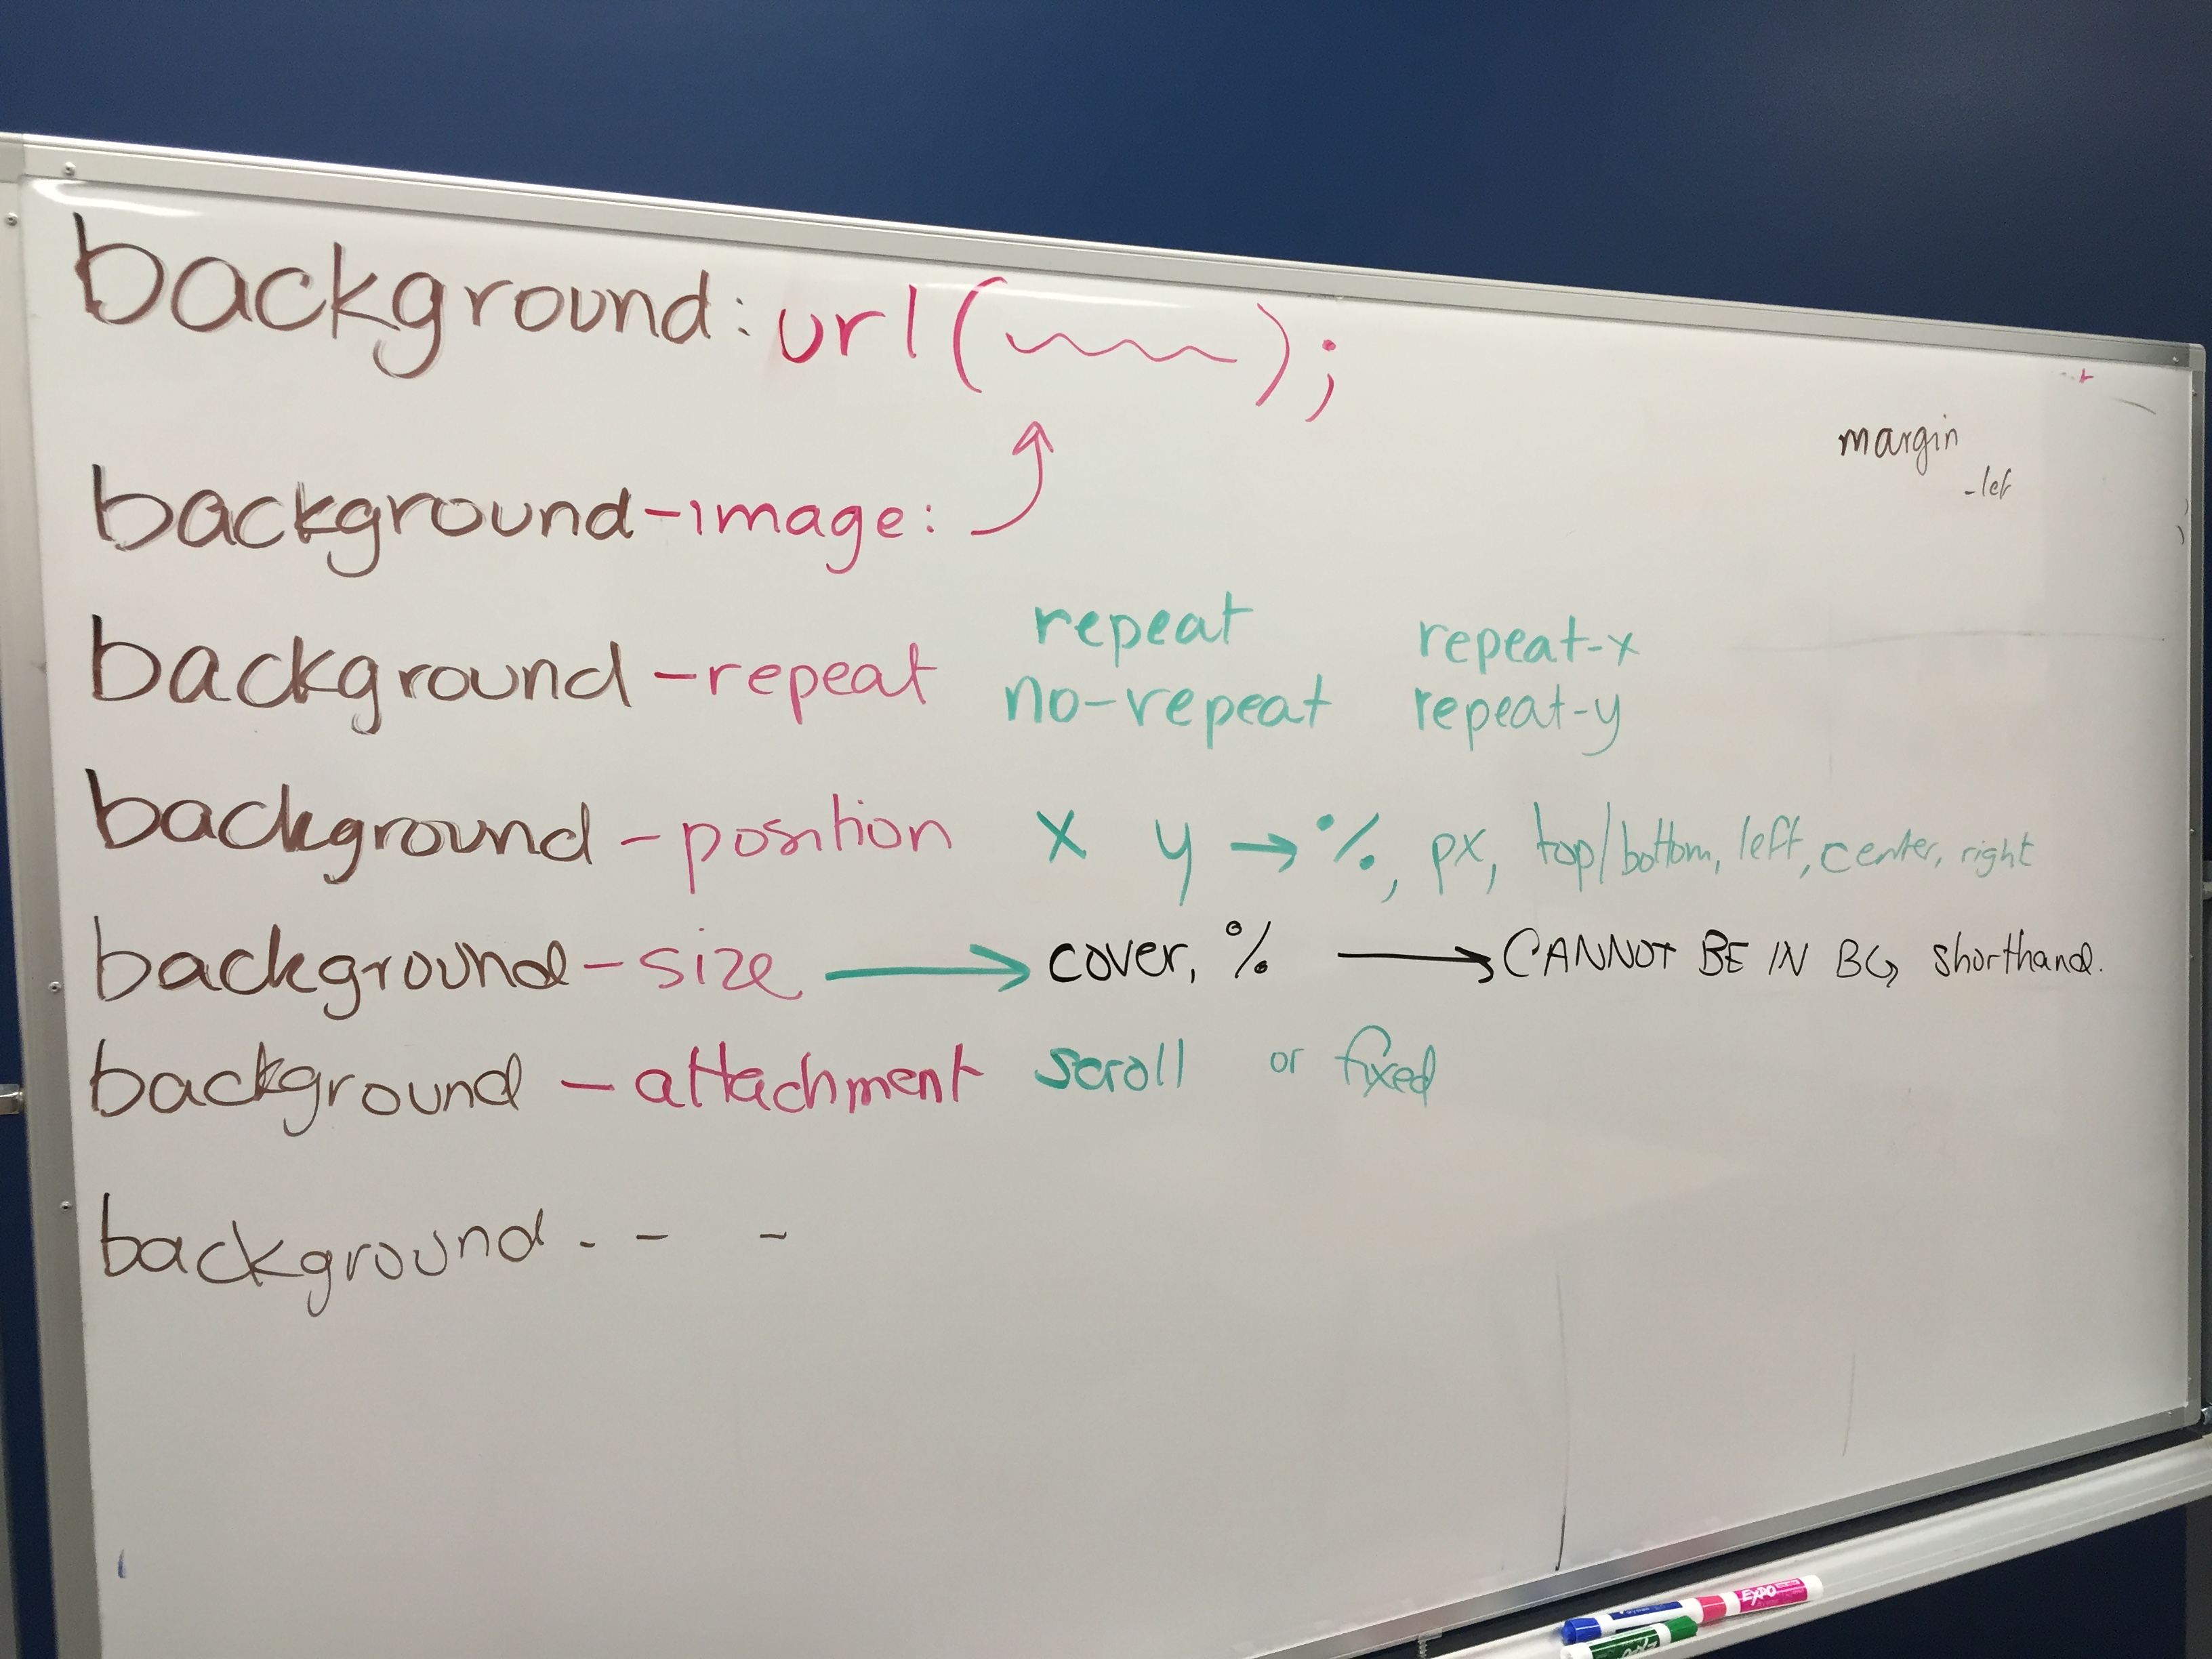 background: url( );
margin
-lef
background-image:
repeat repeat-x
background-repeat
no-repeat repeat-y
background-position x y → %, px, top/bottom, left, center, right
background-size → cover, % → CANNOT BE IN BG shorthand.
background-attachment scroll or fixed
background - - -
EXPO
EXPO